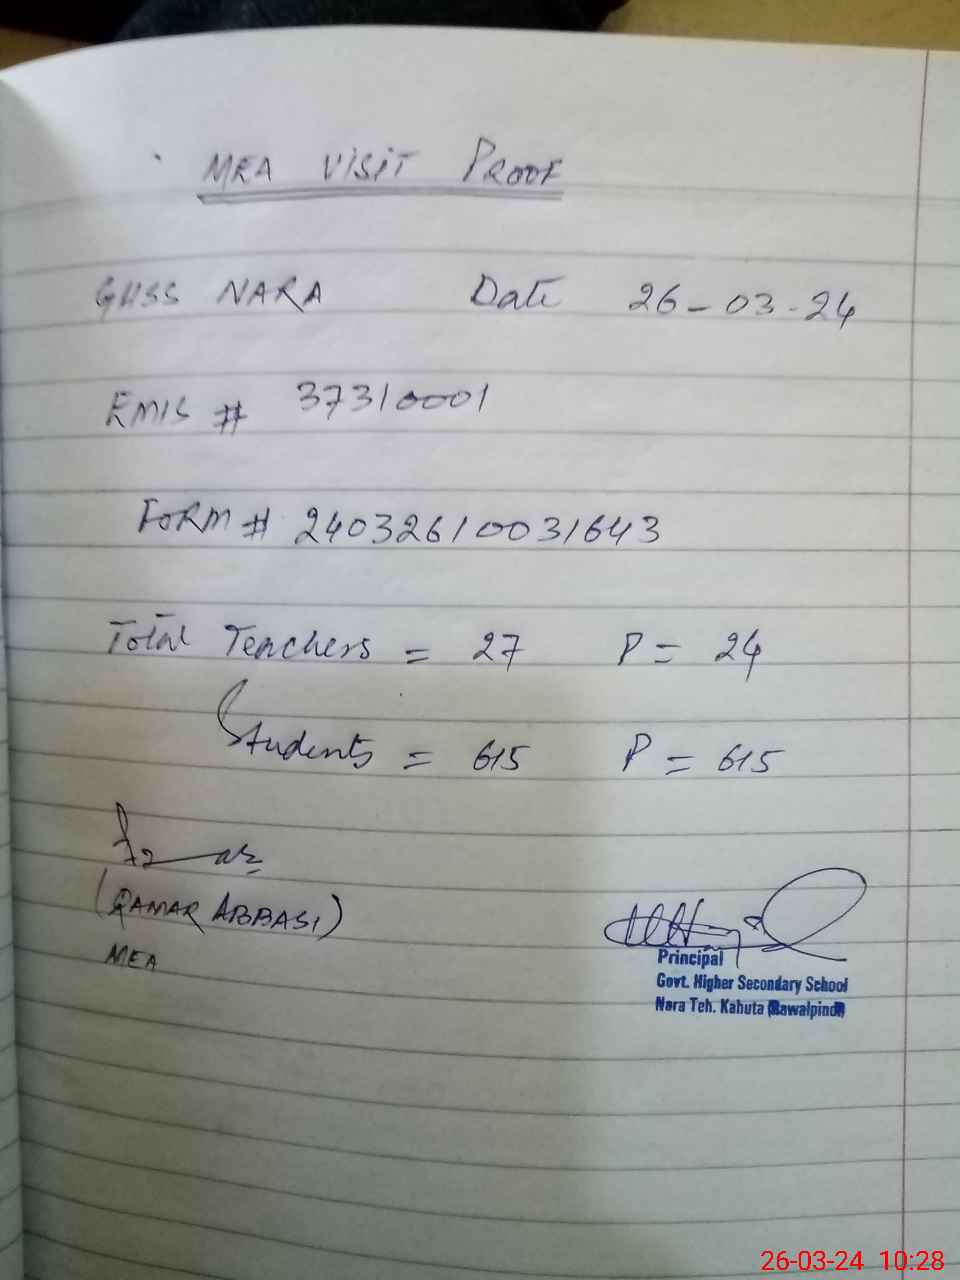 MEA VISIT PROOF
GHSS NARA Date 26-03-24
EMIS # 37310001
FORM # 24032610031643
Total Teachers = 27 P = 24
Students = 615 P = 615
(QAMAR ABBASI)
MEA
Principal
Govt. Higher Secondary School
Nara Teh. Kahuta (Rawalpindi)
26-03-24 10:28